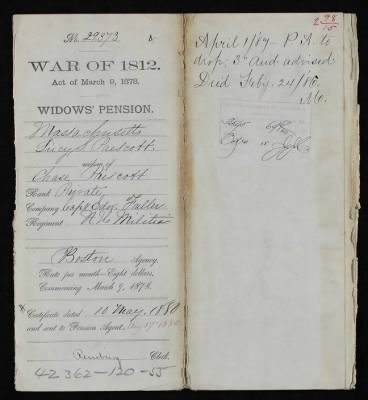 No. 29373
WAR OF 1812.
Act of March 9, 1878.
WIDOWS' PENSION.
Massachusetts
Lucy S. Prescott.
widow of
Chase Prescott
Rank Private,
Company Capt Edw. Fuller
Regiment N. H. Militia
Boston Agency.
Rate per month—Eight dollars.
Commencing March 9, 1878.
Certificate dated 10 May, 1880
and sent to Pension Agent,
Clerk.
42 362-120-55
April 1/87 - P. A. to
drop; 3d Aud advised
Died Feby. 24/86.